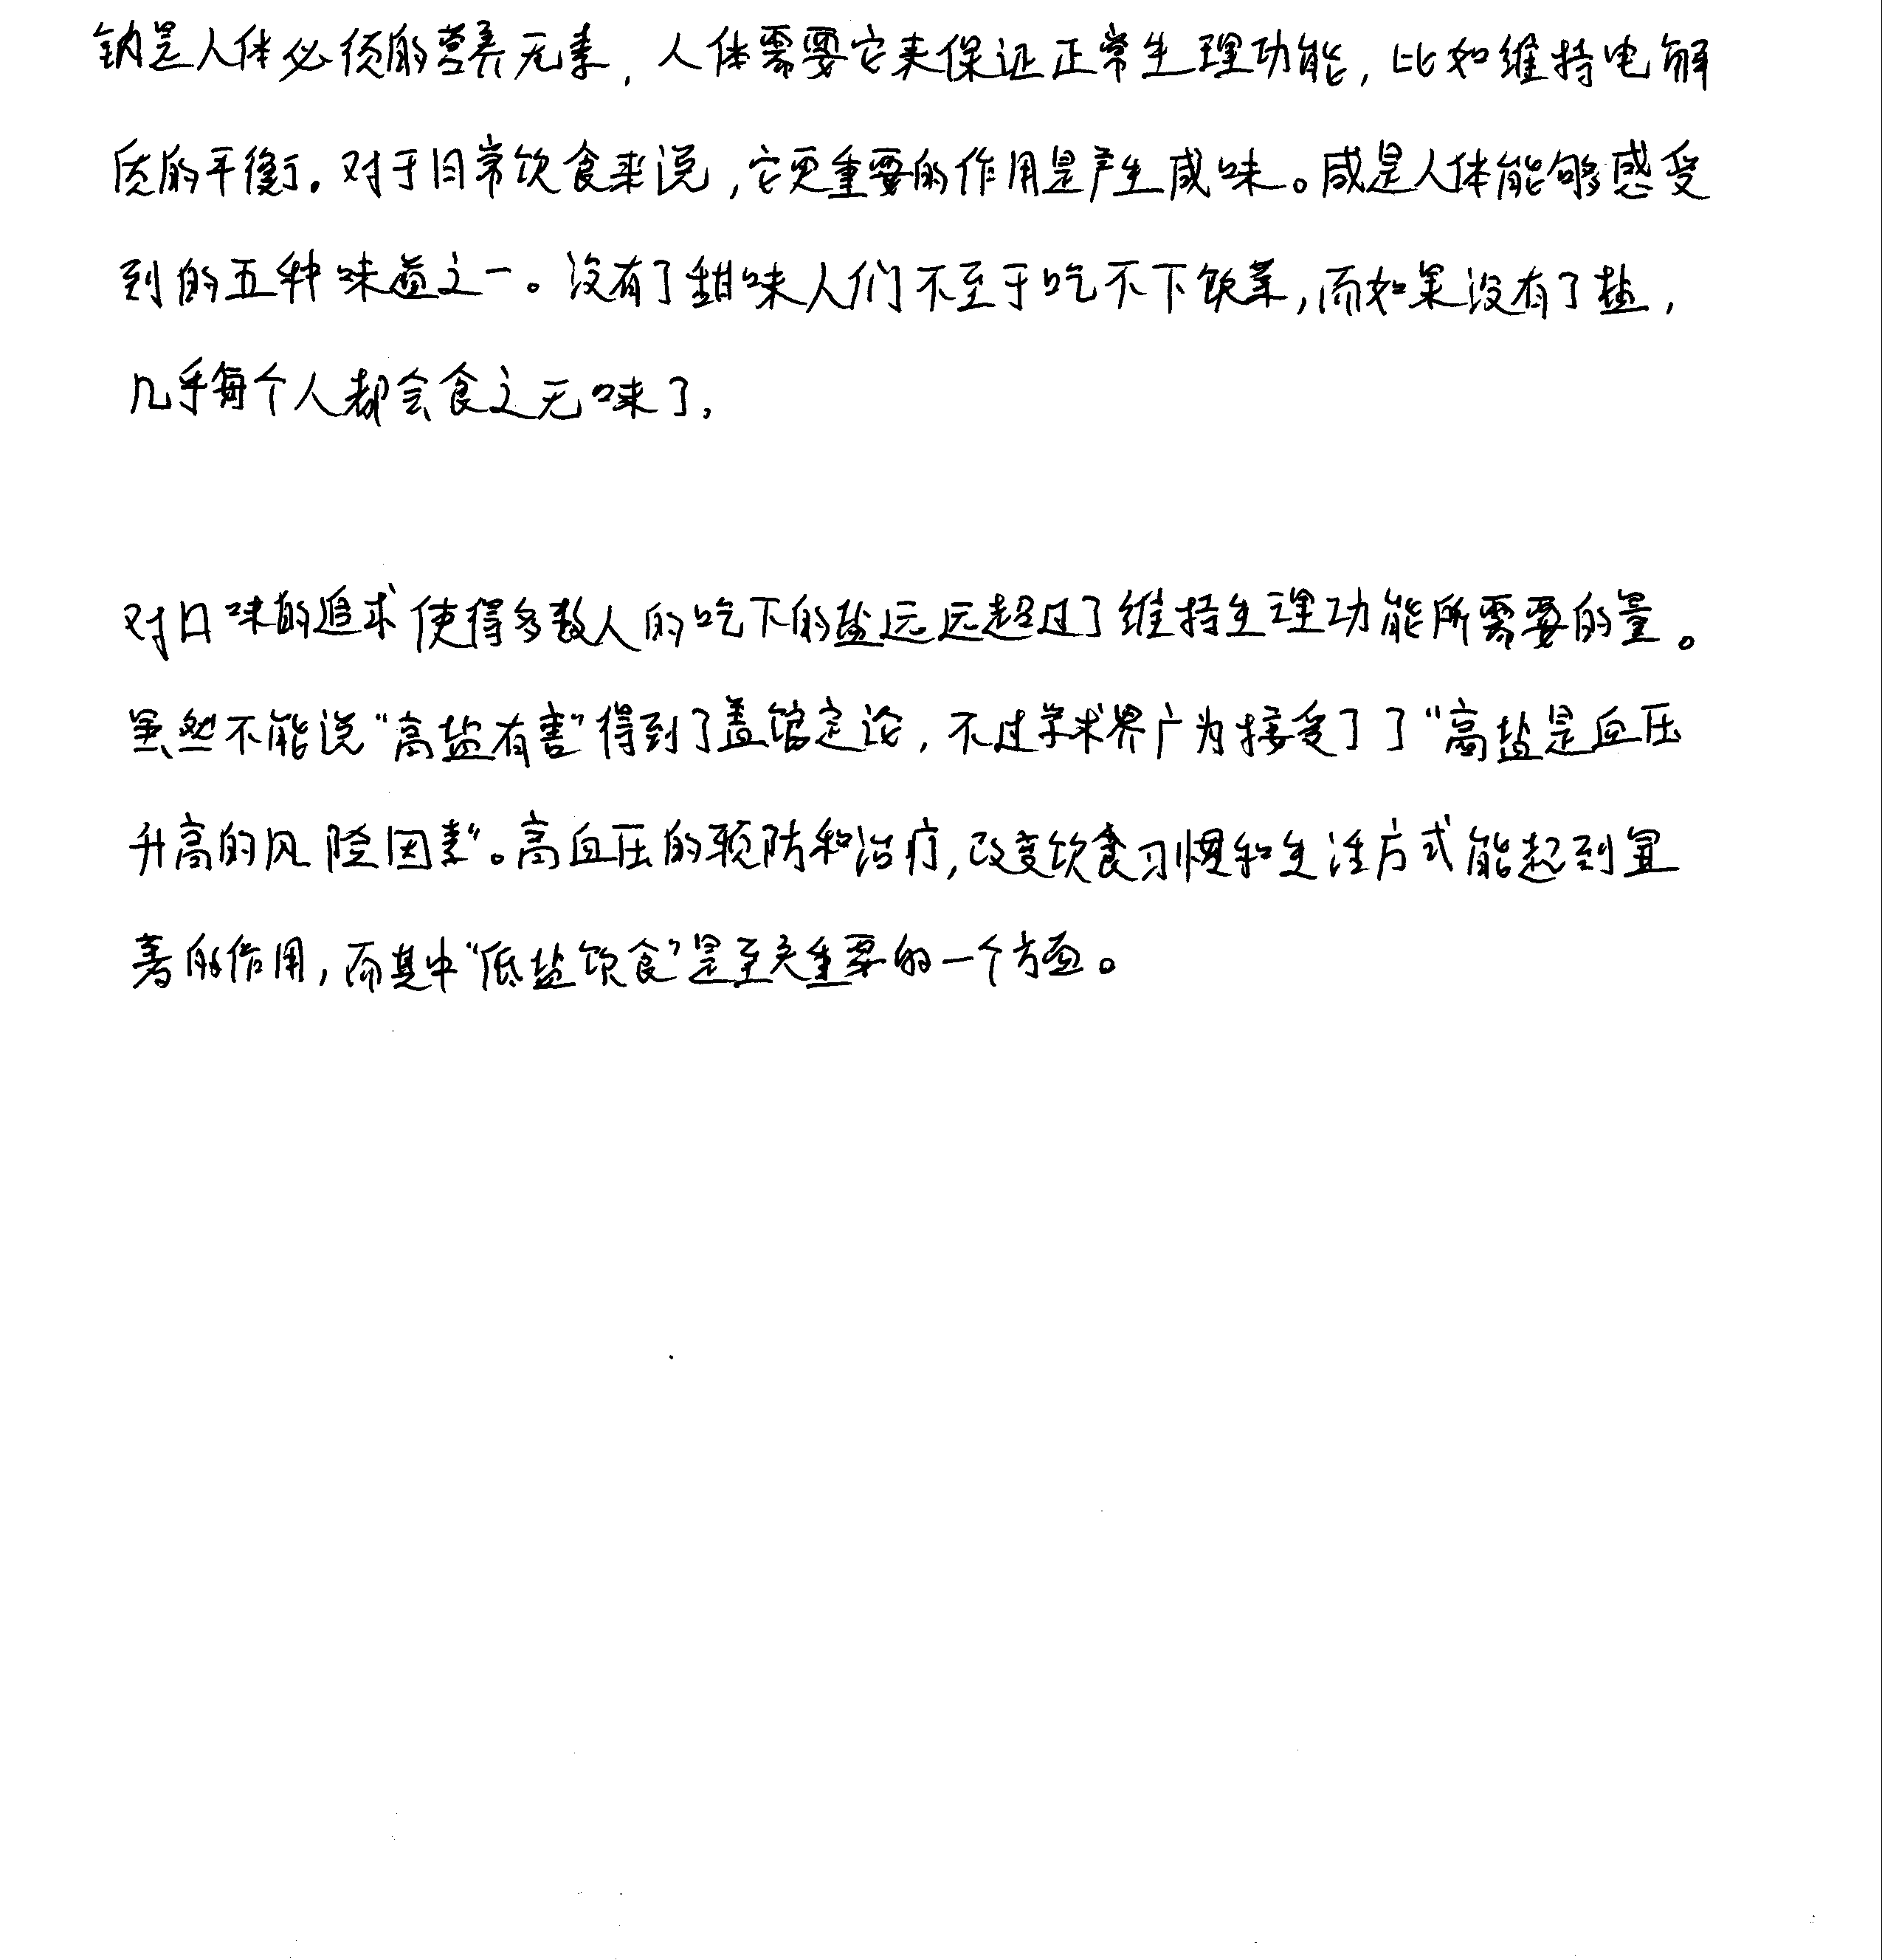 钠是人体必须的营养元素，人体需要它来保证正常生理功能，比如维持电解
质的平衡。对于日常饮食来说，它更重要的作用是产生咸味。咸是人体能够感受
到的五种味道之一。没有了甜味人们不至于吃不下饭菜，而如果没有了盐，
几乎每个人都会食之无味了，
对口味的追求使得多数人的吃下的盐远远超过了维持生理功能所需要的量。
虽然不能说“高盐有害”得到了盖馆定论，不过学术界广为接受了了“高盐是血压
升高的风险因素”。高血压的预防和治疗，改变饮食习惯和生活方式能起到显
著的作用，而其中“低盐饮食”是至关重要的一个方面。